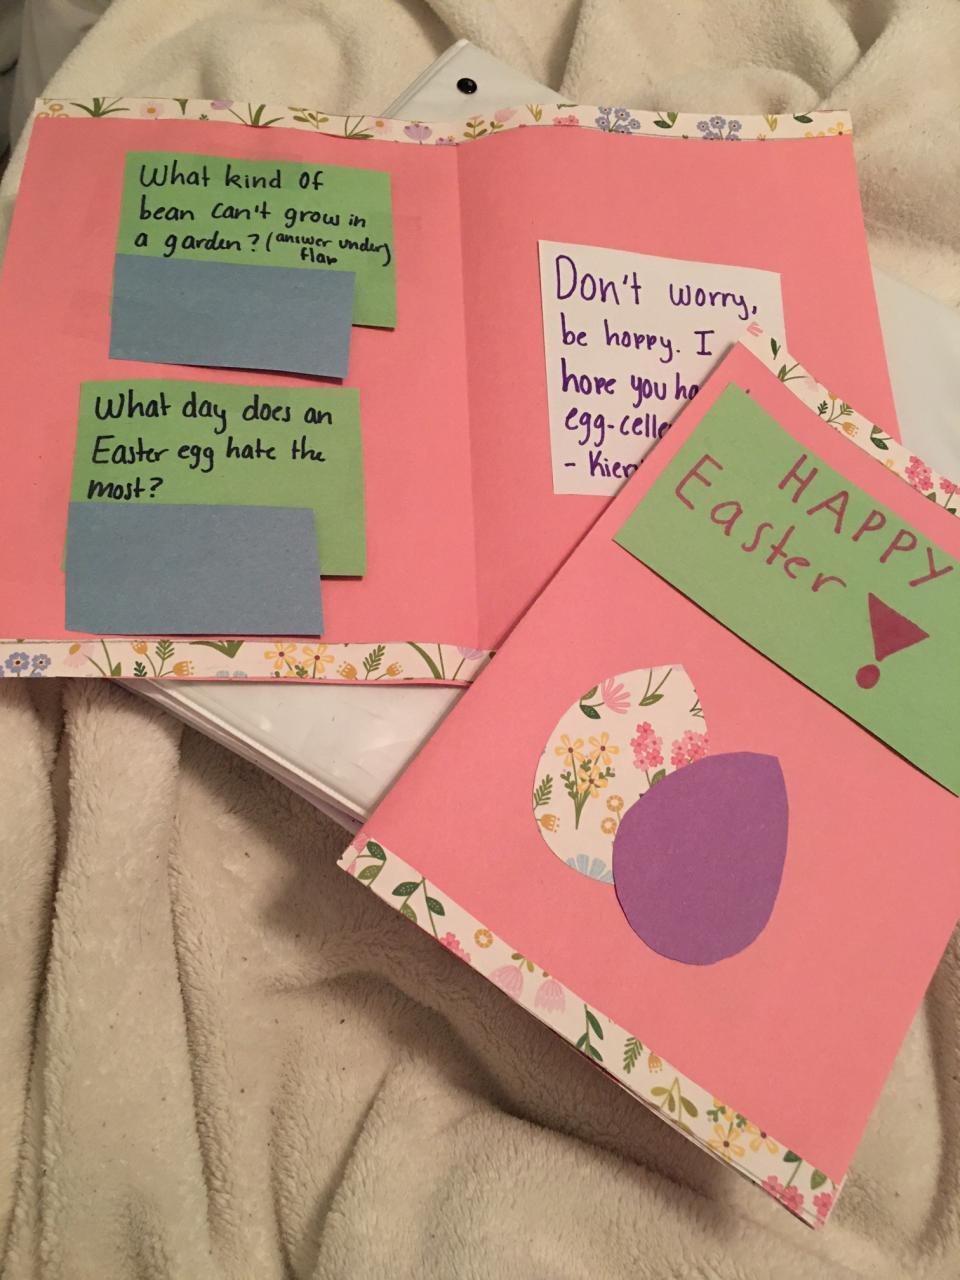 What kind of
bean can't grow in
a garden? (answer under)
flap
What day does an
Easter egg hate the
most?
Don't worry,
be hoppy. I
hope you
- 
HAPPY
Easter !